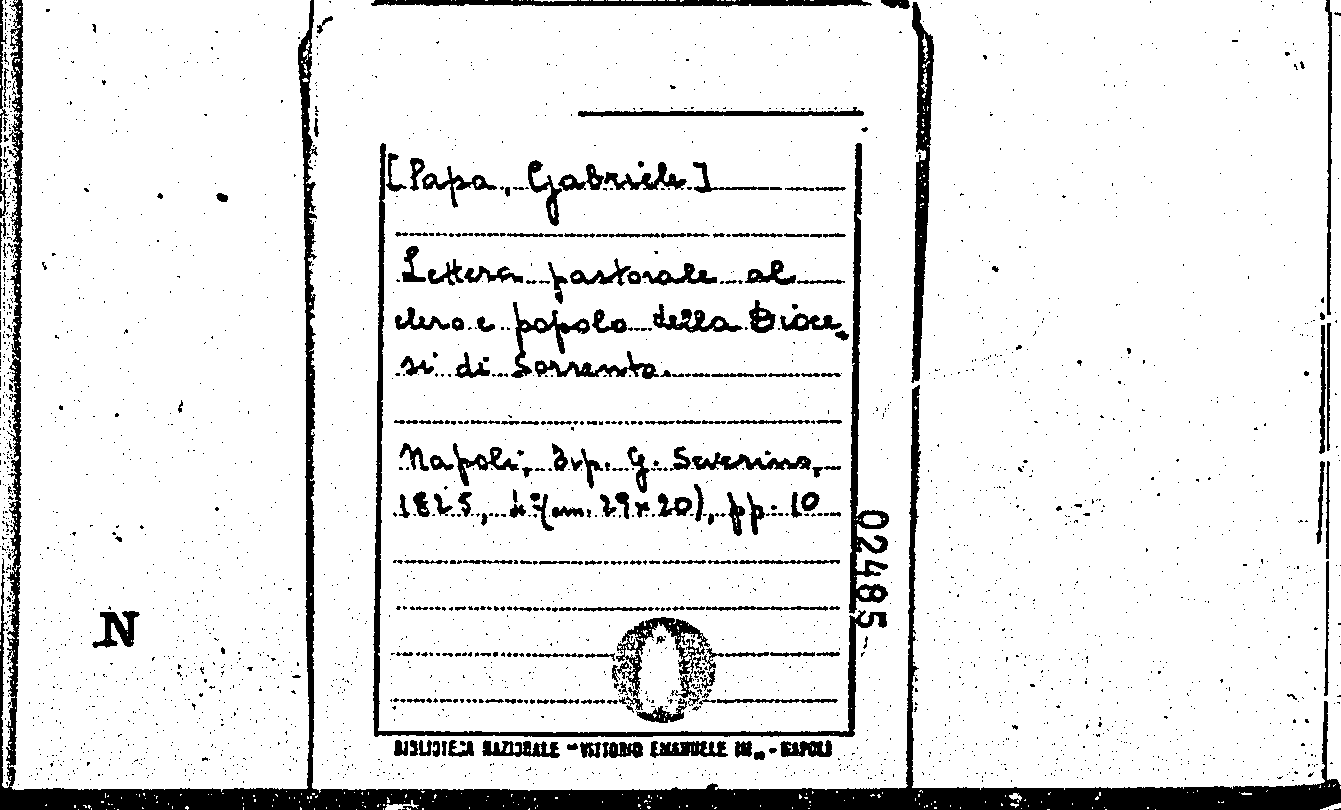 [Papa, Gabriele]
Lettera pastorale al
clero e popolo della Dioce-
si di Sorrento.
Napoli, Tip. G. Severino,
1825, (cm. 29x20), pp. 10
02485
N
BIBLIOTECA NAZIONALE "VITTORIO EMANUELE III" - NAPOLI